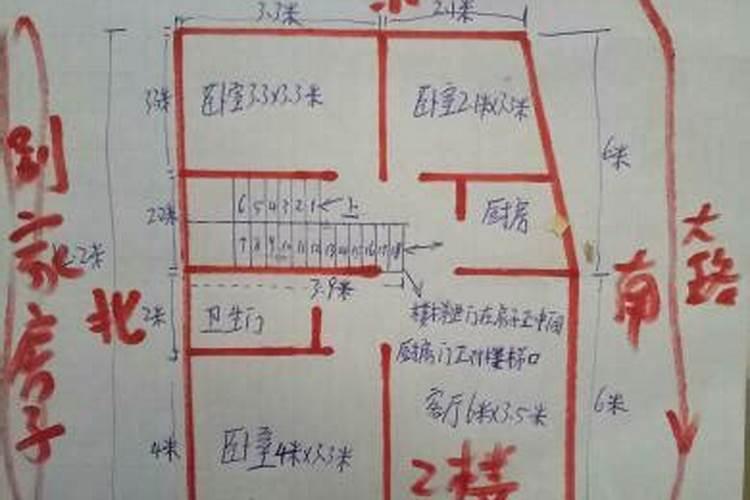 3.3米
2.4米
卧室3.3x3.3米
卧室2.1米x3.3米
33米
6米
6 5 4 3 2 1
上
22米
厨房
7 8 9 10 11 12 13 14 15 16 17 18
大路
南
别家房子
北
3.9米
2米
卫生门
厨房门正对楼梯口
客厅6米x3.5米
6米
卧室4米x3.3米
4米
2楼